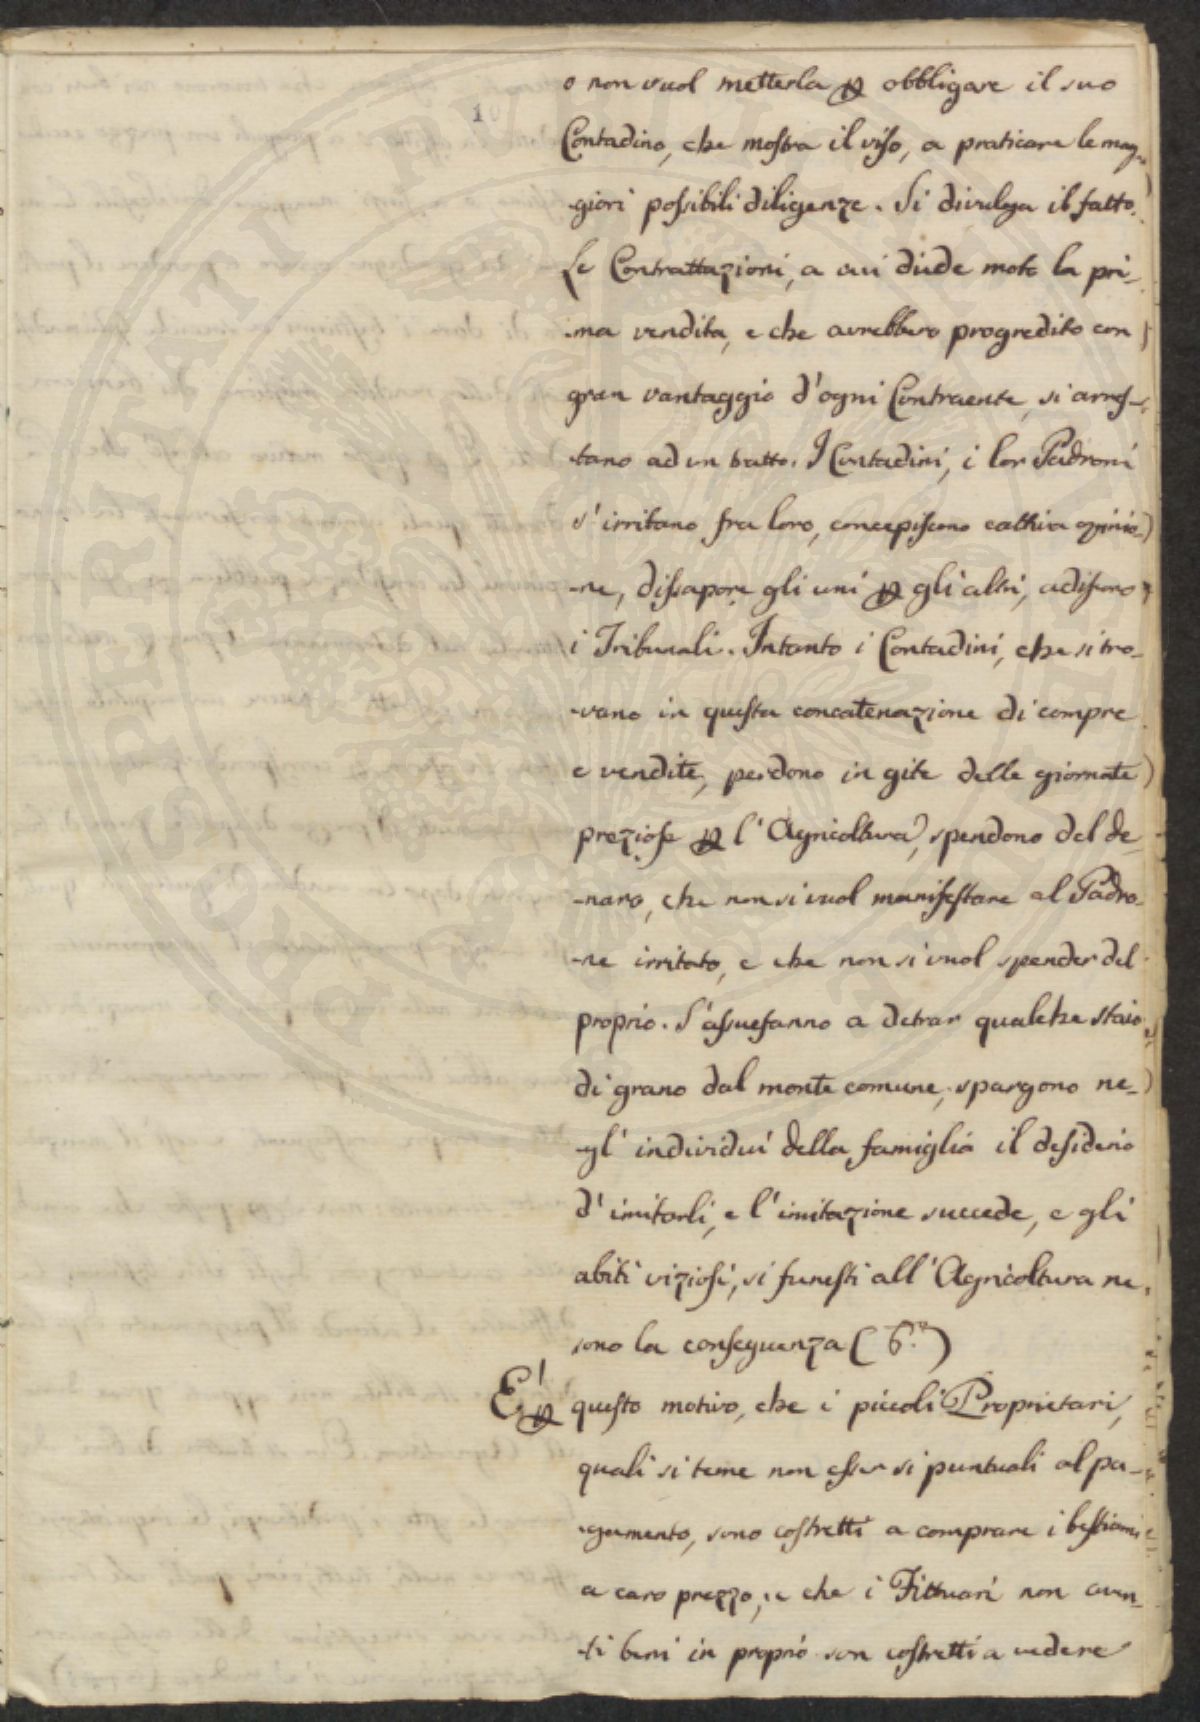 o non vuol metterla ꝑ obbligare il suo
Contadino, che mostra il viso, a praticare le mag-
-giori possibili diligenze. Si divulga il fatto.
Le Contrattazioni, a cui diede moto la pri-
-ma vendita, e che avrebbero progredito con
gran vantaggio d'ogni Contraente, si arres-
-tano ad un tratto. I Contadini, i lor Padroni
s'irritano fra loro, concepiscono cattiva opinio-
-ne, dissapore gli uni ꝑ gli altri, adiscono
i Tribunali. Intanto i Contadini, che si tro-
-vano in questa concatenazione di compre
e vendite, perdono in gite delle giornate
preziose ꝑ l'Agricoltura, spendono del de-
-naro, che non si vuol manifestare al Padro-
-ne irritato, e che non si vuol spender del
proprio. S'assuefanno a detrar qualche staio
di grano dal monte comune, spargono ne-
-gl'individui della famiglia il desiderio
d'imitarli, e l'imitazione succede, e gli
abiti viziosi, sì funesti all'Agricoltura ne
sono la conseguenza (6.ª)
E' ꝑ questo motivo, che i piccoli Proprietari,
quali si teme non esser sì puntuali al pa-
-gamento, sono costretti a comprare i bestiami
a caro prezzo, e che i Fittuari non aven-
-ti beni in proprio son costretti a vedere